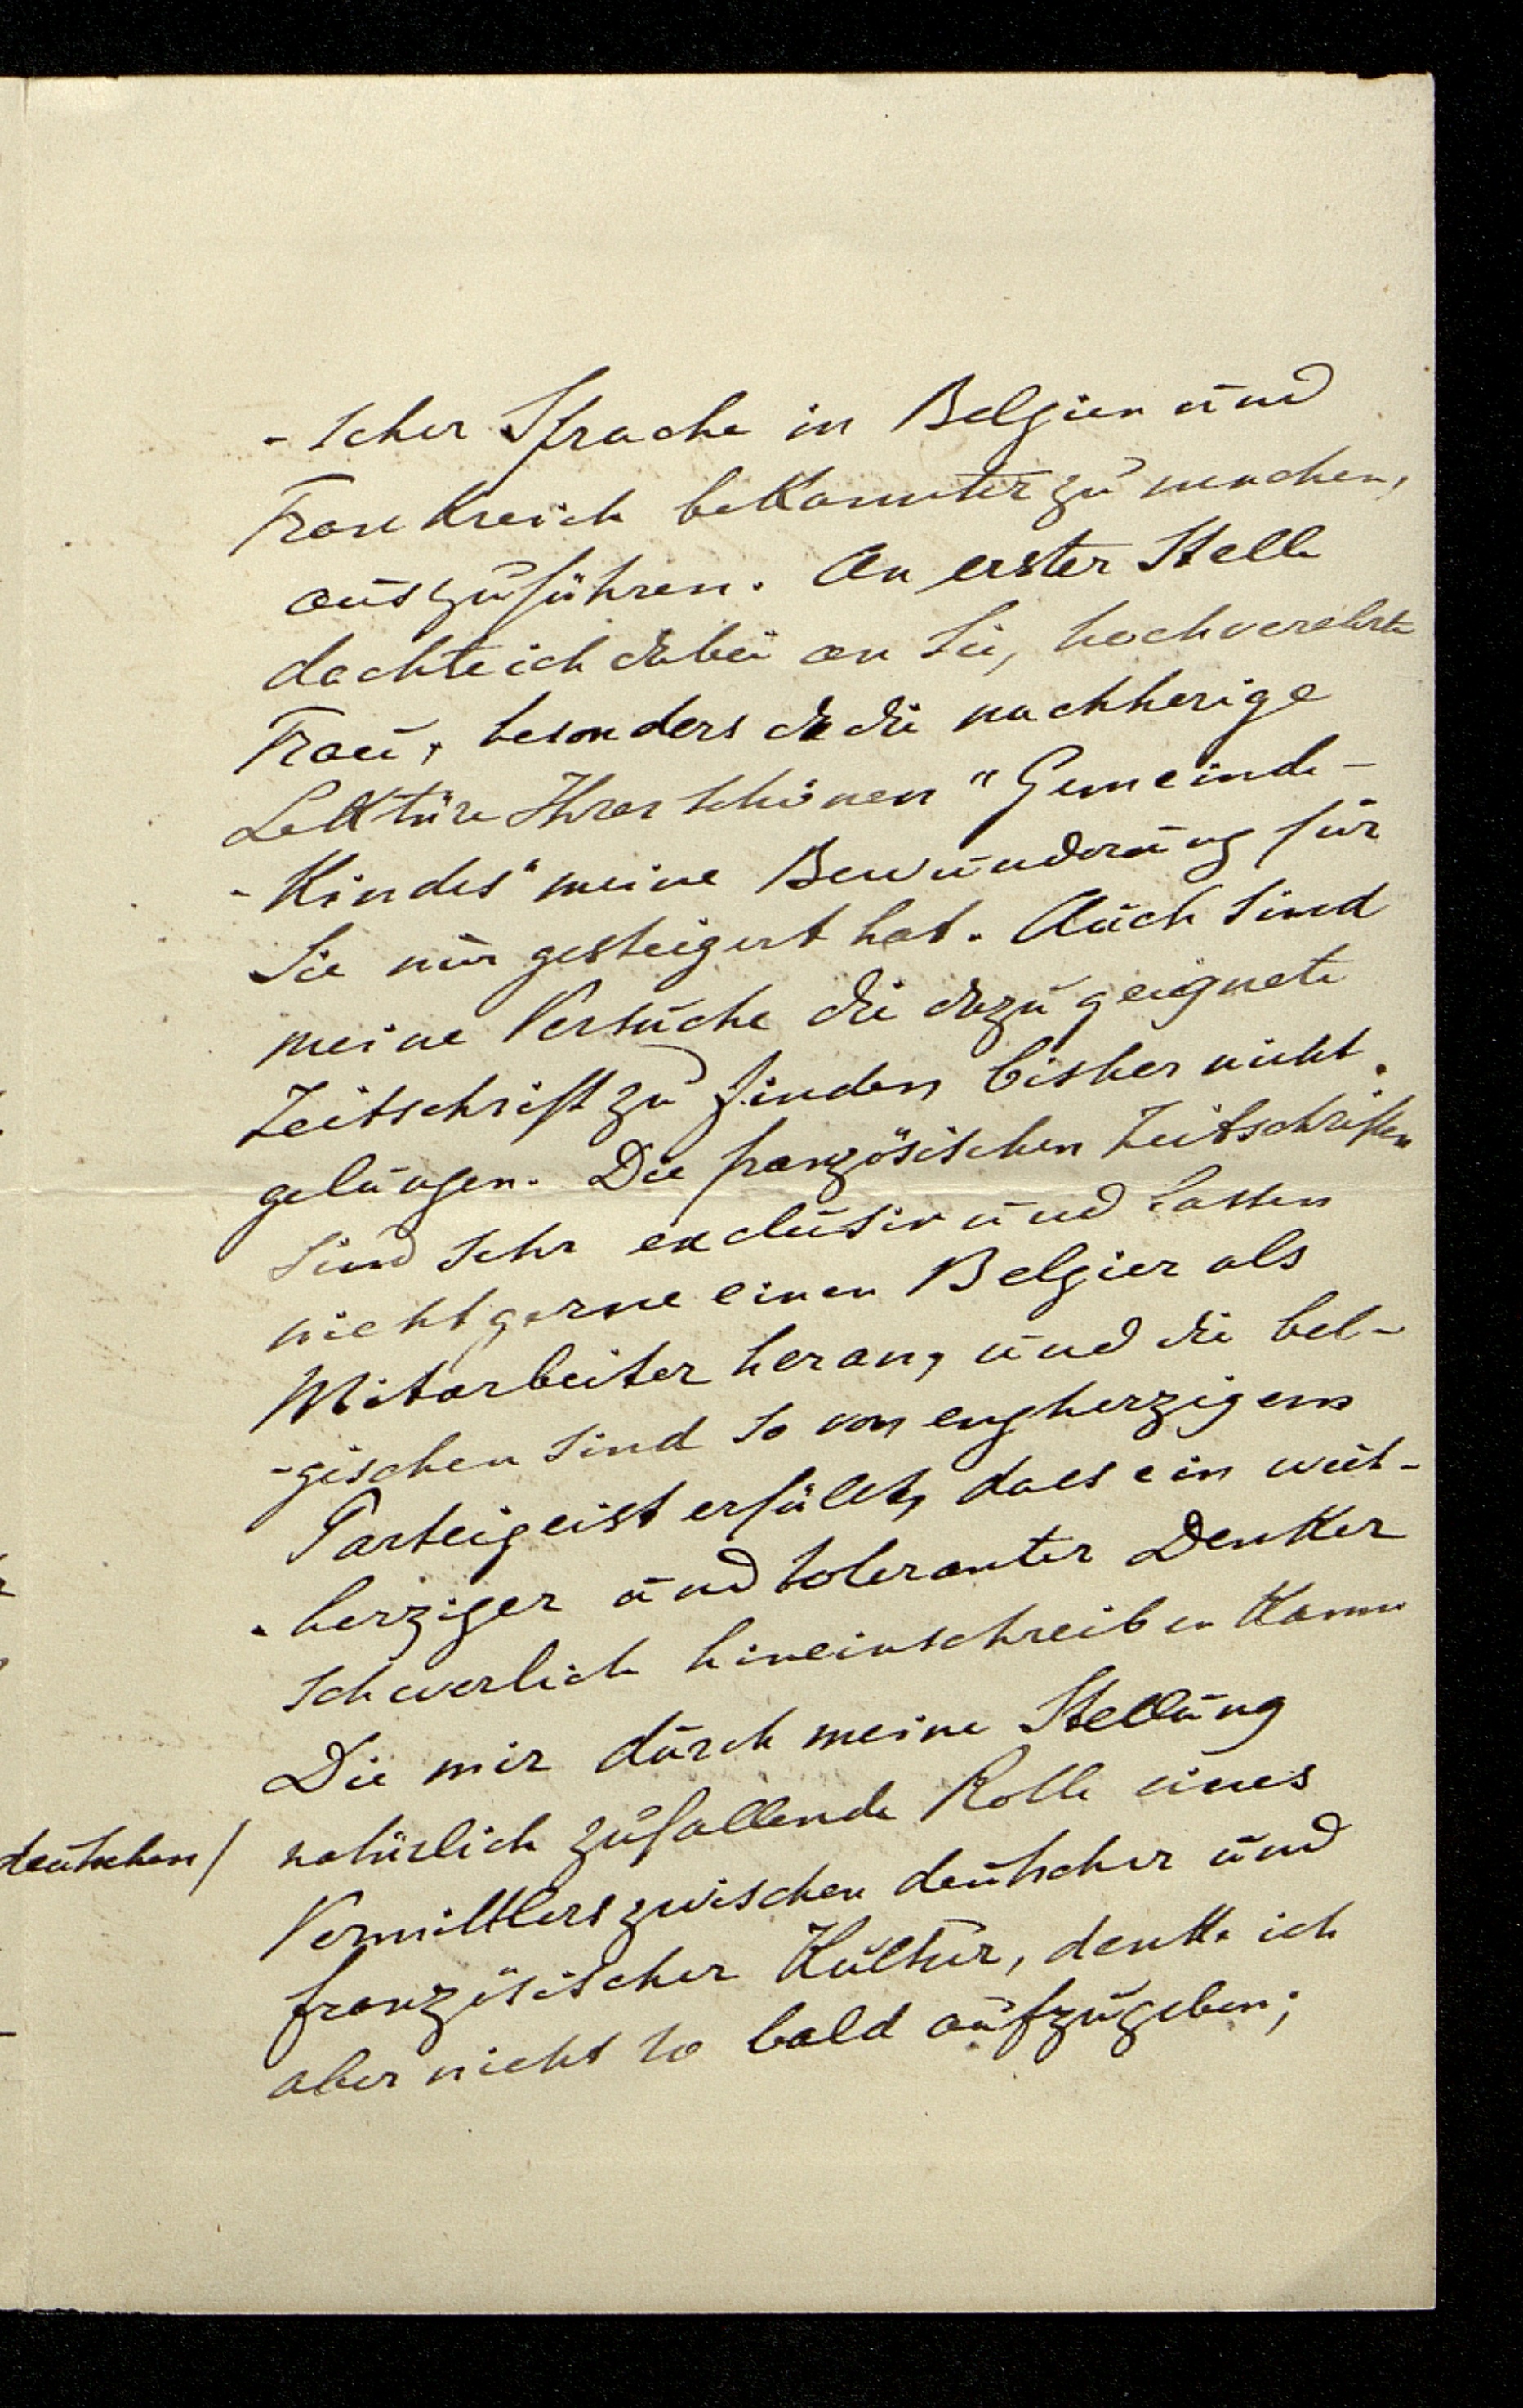 -scher Sprache in Belgien und
Frankreich bekannter zu machen,
auszuführen. An erster Stelle
dachte ich dabei an Sie, hochverehrte
Frau, besonders da die nachherige
Lektüre Ihres schönen "Gemeinde-
-Kindes" meine Bewunderung für
Sie nur gesteigert hat. Auch sind
meine Versuche die dazu geeignete
Zeitschrift zu finden bisher nicht
gelungen. Die französischen Zeitschriften
sind sehr exclusiv und lassen
nicht gerne einen Belgier als
Mitarbeiter heran, und die bel-
-gischen sind so von engherzigem
Parteigeist erfüllt, dass ein weit-
-herziger und toleranter Denker
schwerlich hineinschreiben kann
Die mir durch meine Stellung
natürlich zufallende Rolle eines
deutschen/
Vermittlers zwischen deutscher und
französischer Kultur, denke ich
aber nicht so bald aufzugeben;